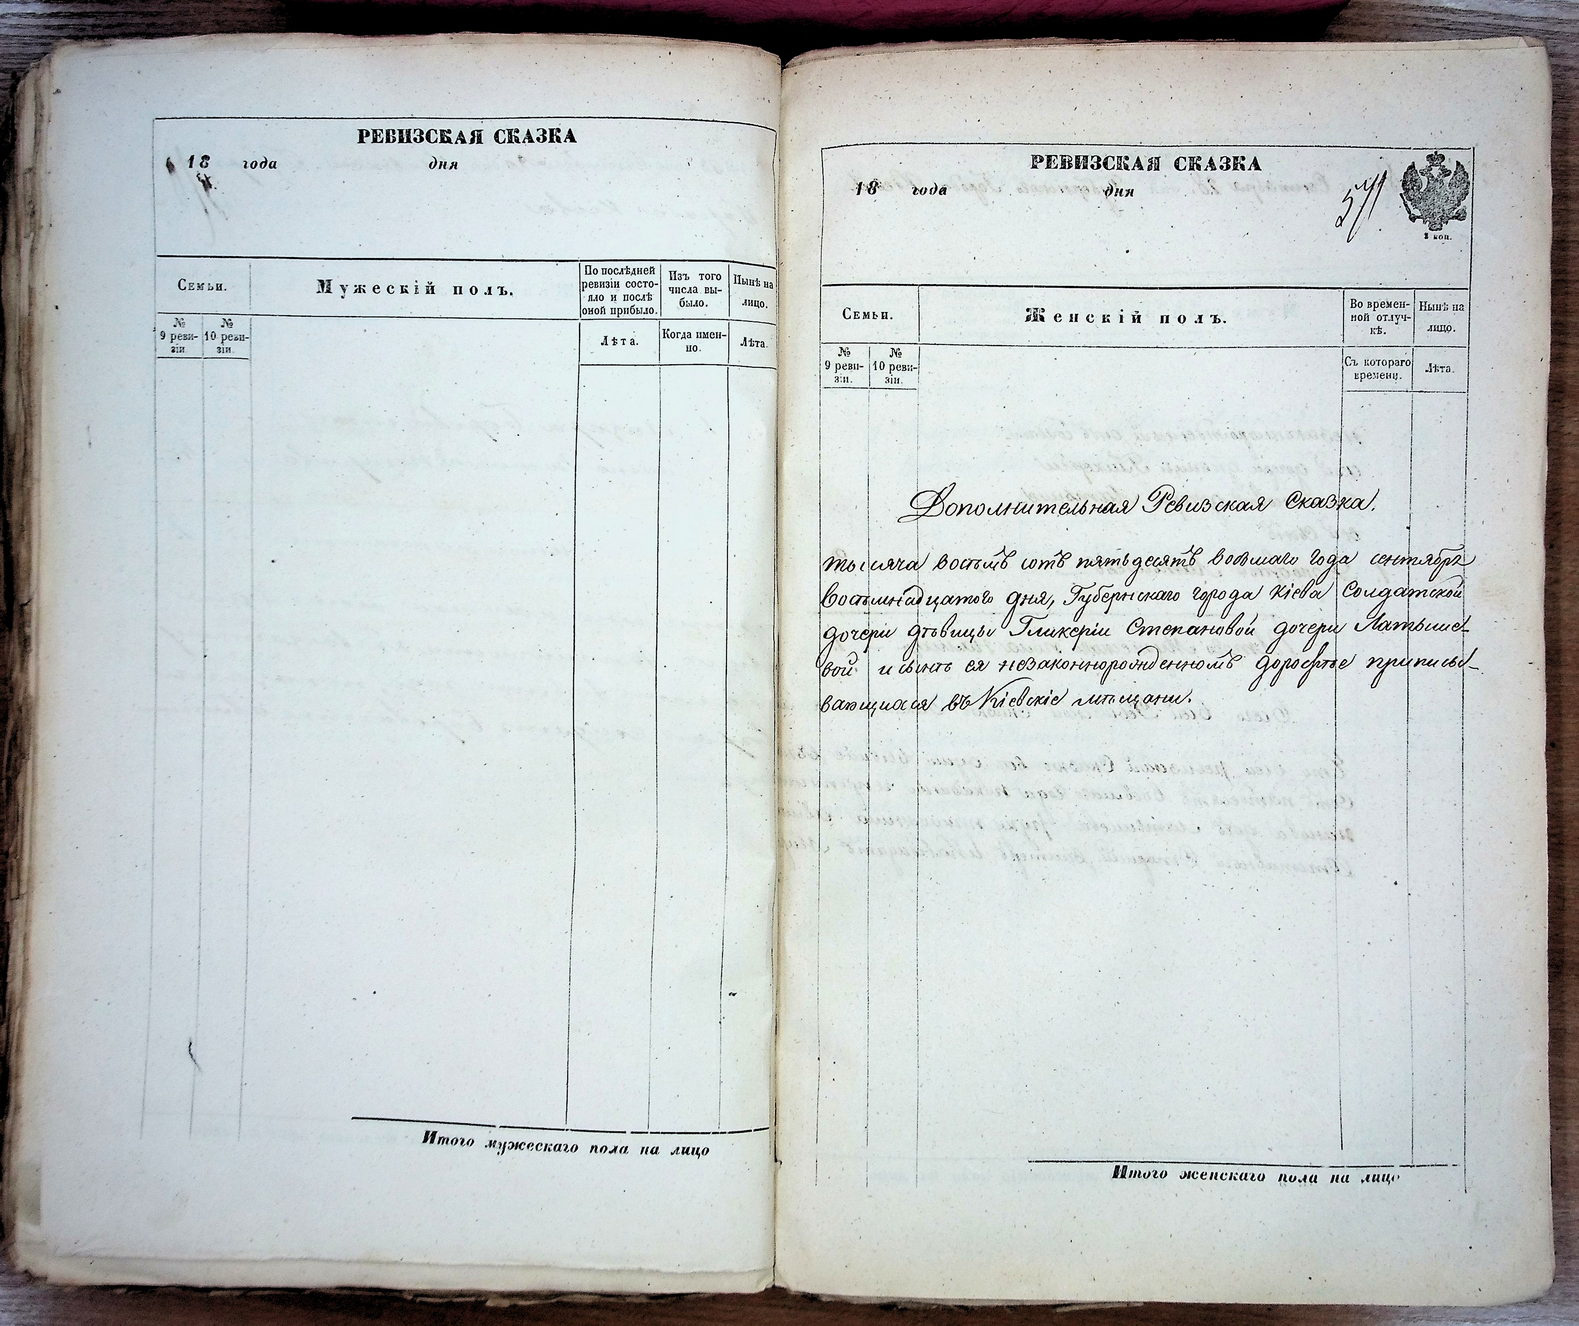 РЕВИЗСКАЯ СКАЗКА
18 года дня
Семьи.
Мужескій полъ.
По послѣдней ревизіи состояло и послѣ оной прибыло.
Изъ того числа выбыло.
Нынѣ на лицо.
№ 9 ревизіи
№ 10 ревизіи.
Лѣта.
Когда именно.
Лѣта.
Итого мужескаго пола на лицо
РЕВИЗСКАЯ СКАЗКА
18 года дня
571
3 коп.
Семьи.
Женскій полъ.
Во временной отлучкѣ.
Нынѣ на лицо.
№ 9 ревизіи.
№ 10 ревизіи.
Съ котораго времени.
Лѣта.
Дополнительная Ревизская Сказка.
тысяча восемь сотъ пятьдесятъ восьмаго года сентября
восемнадцатого дня, Губернскаго города Кіева Солдатской
дочери дѣвицы Гликеріи Степановой дочери Латыше-
вой и сынѣ ея незаконнорожденномъ Дорофѣе приписы-
вающиася въ Кіевскіе мѣщани.
Итого женскаго пола на лицо